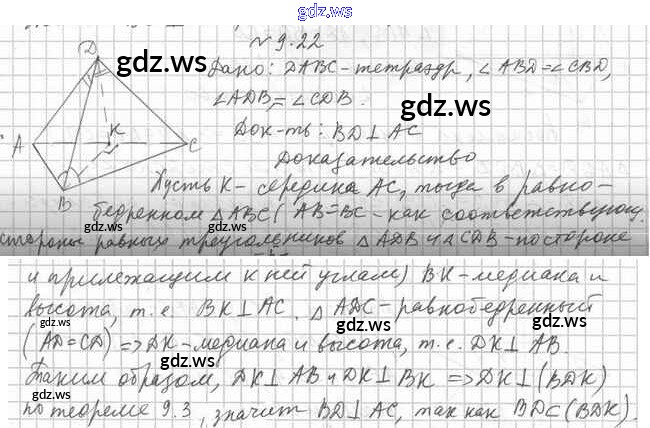 gdz.ws
№ 9.22
D
gdz.ws
Дано: DABC - тетраэдр, ∠ABD = ∠CBD,
∠ADB = ∠CDB.
gdz.ws
Док-ть: BD ⊥ AC
A K C
gdz.ws
Доказательство
B
Пусть K - середина AC, тогда в равно-
бедренном △ABC (AB=BC - как соответствующ.
стороны равных треугольников △ADB и △CDB - по стороне
и прилежащим к ней углам) BK - медиана и
gdz.ws
высота, т.е. BK ⊥ AC. △ADC - равнобедренный
gdz.ws
(AD=CD) => DK - медиана и высота, т.е. DK ⊥ AB.
gdz.ws
Таким образом, DK ⊥ AB и DK ⊥ BK => DK ⊥ (BDK)
по теореме 9.3, значит BD ⊥ AC, так как BD ⊂ (BDK).
gdz.ws
gdz.ws